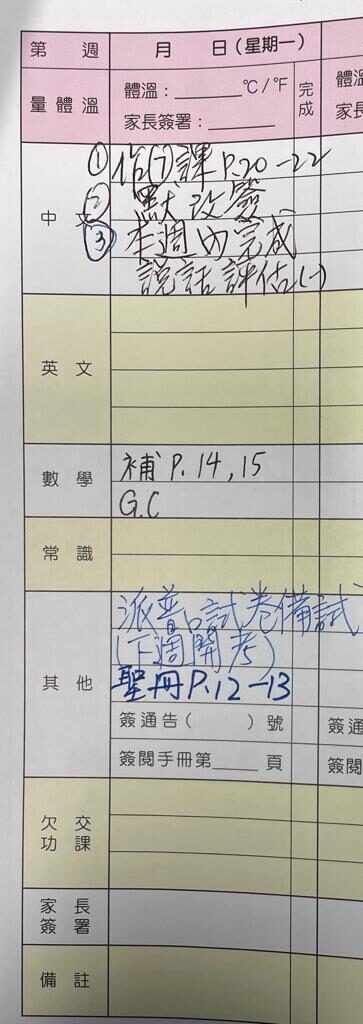 第 週 月 日(星期一)
量體溫 體溫：______ °C/°F 完成
家長簽署：______
中文 ① 作(7)課P.20-22
② 默改簽
③ 本週內完成
說話評估(一)
英文
數學 補 P.14,15
G.C
常識
其他 派普口試卷備試
(下週開考)
聖冊P.12-13
簽通告( )號 簽通
簽閱手冊第____頁 簡閱
欠交功課
家長簽署
備註